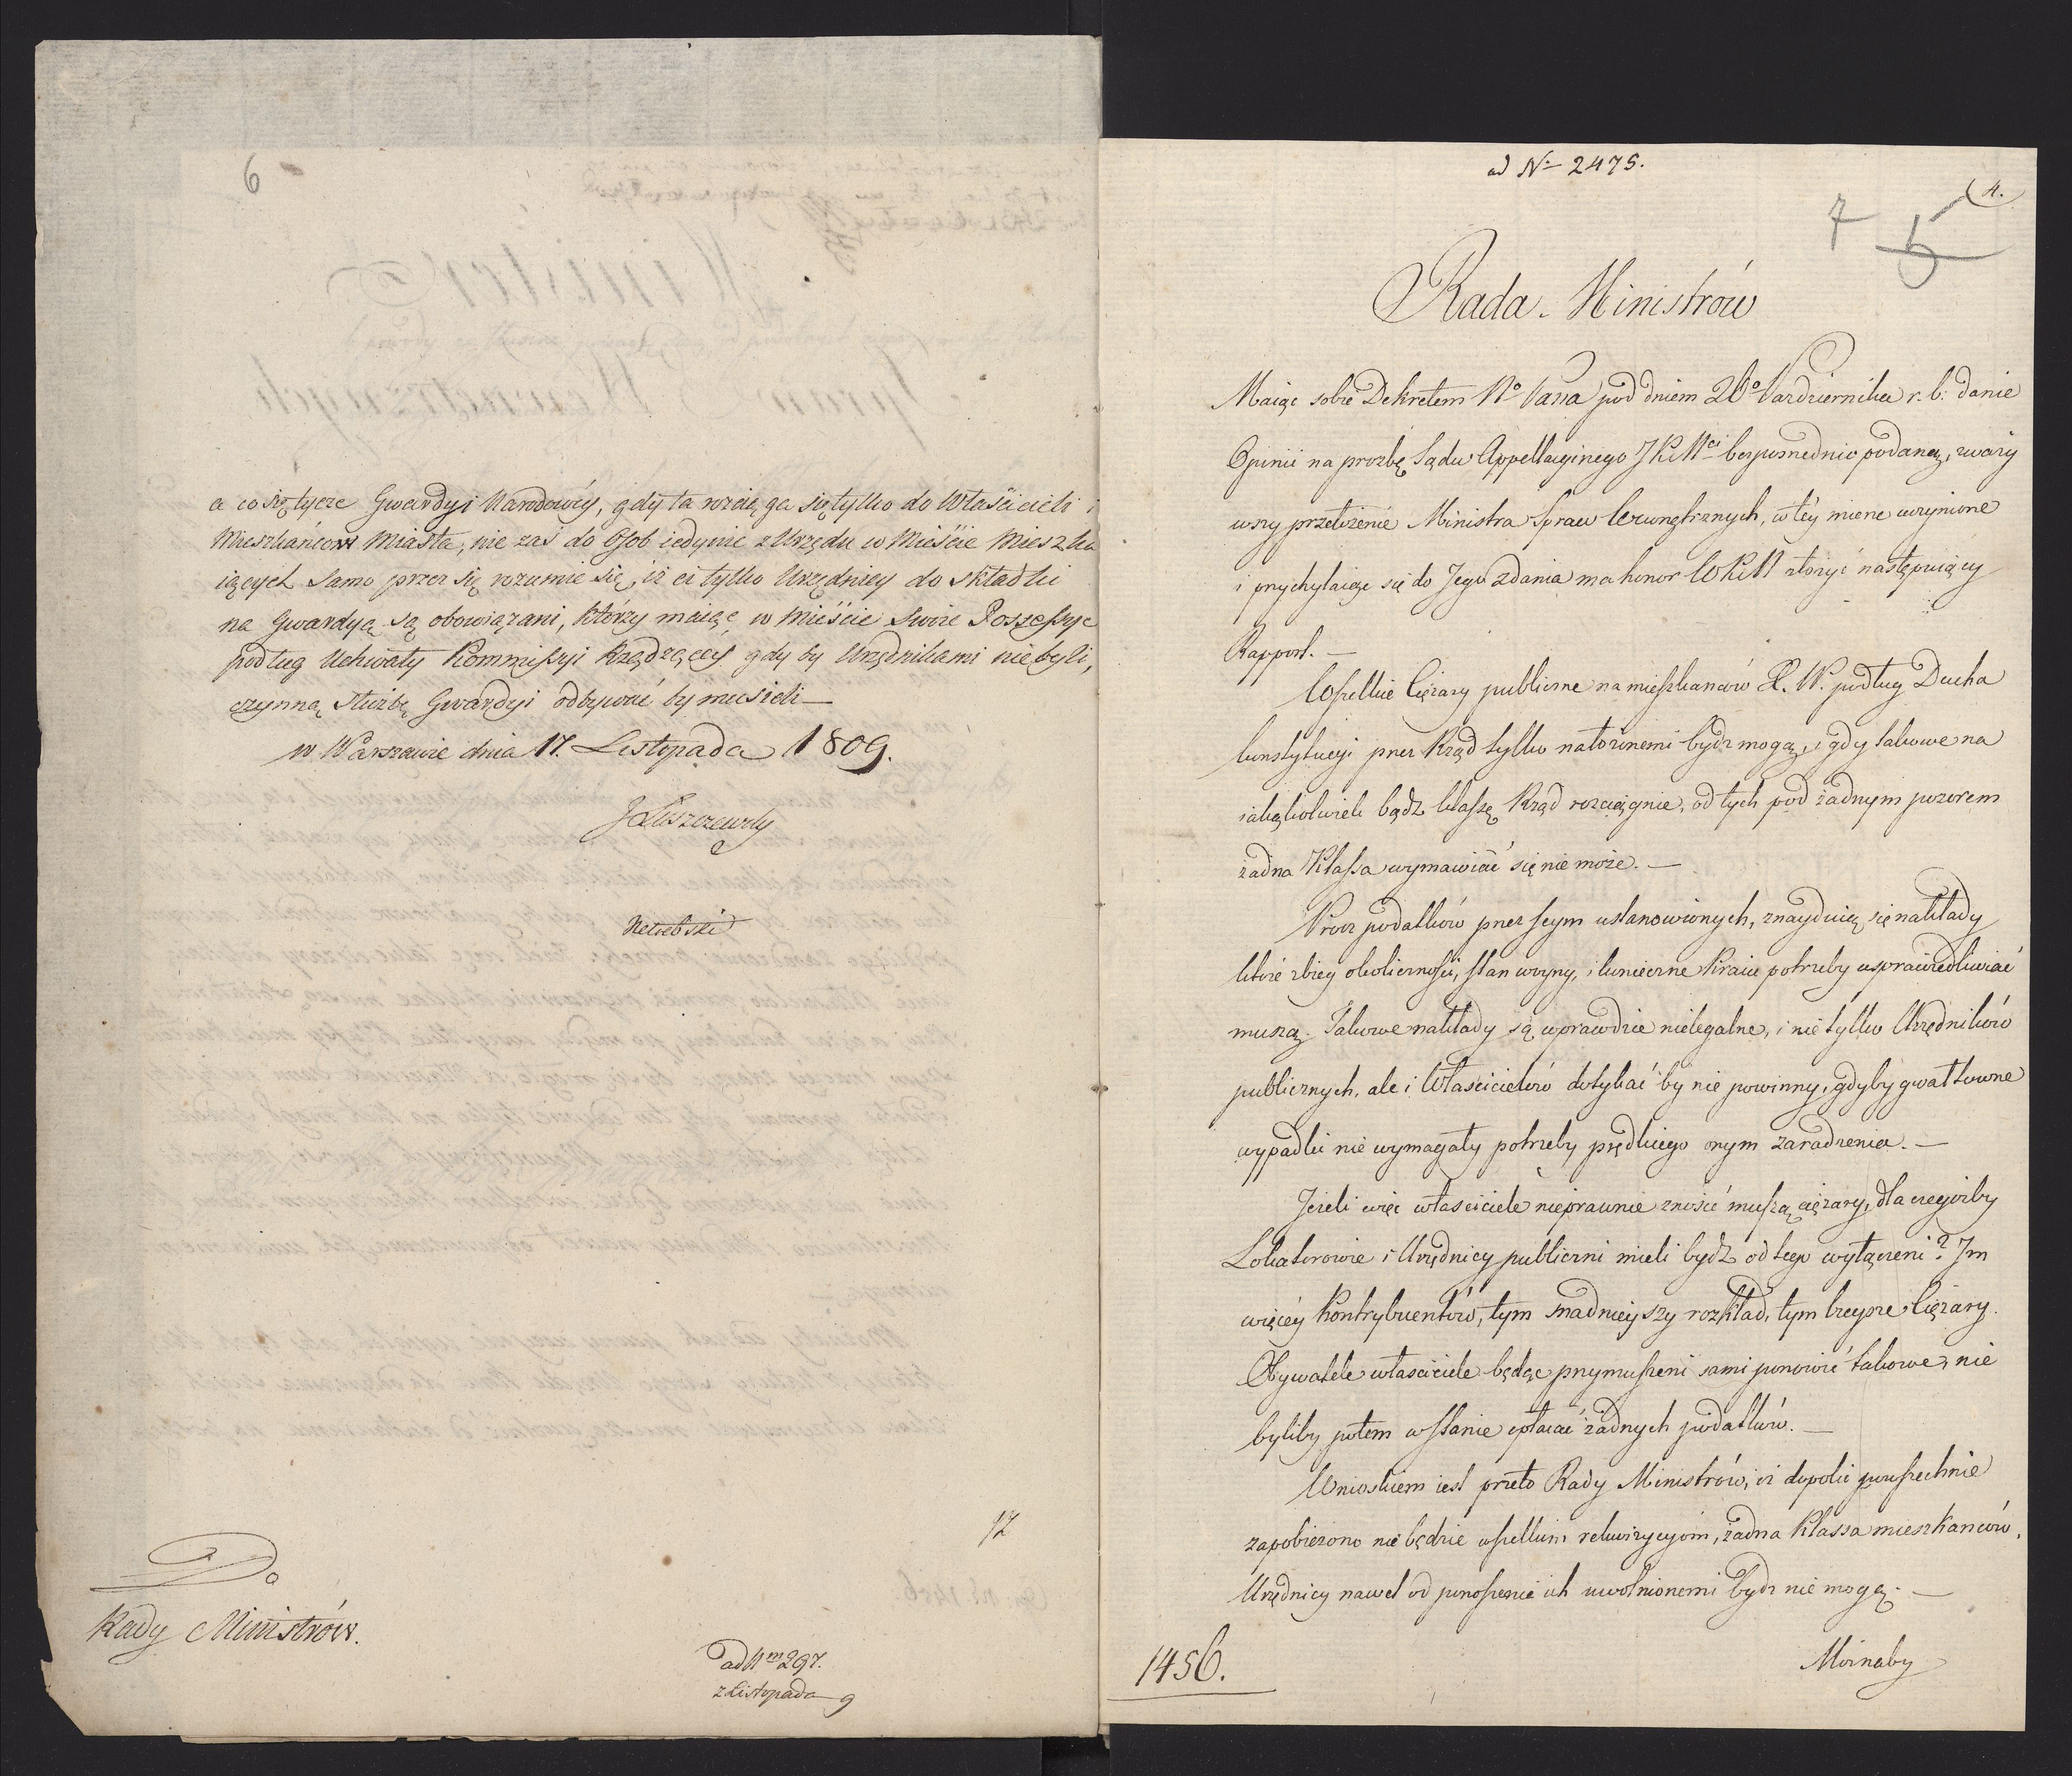 6
a co się tycze Gwardyi Narodowéy, gdy ta rozciąga się tylko do Właścicieli i
Mieszkańców Miasta, nie zaś do Osob iedynie z Urzędu w Mieście Mieszka
iących samo przez się rozumie się, iż ci tylko Urzędnicy do składki
na Gwardyą są obowiązani, którzy maiąc w Mieście swoie Possessye
podług Uchwały Kommissyi Rządzącéy gdyby Urzędnikami niebyli,
czynną służbę Gwardyi odbywać by musieli —
w Warszawie dnia 17. Listopada 1809.
JŁuszczewsky
12
Do
Rady Ministrów.
ad Nm 297.
z Listopada 9
ad No 2475.
4.
7 5
Rada Ministrów
Maiąc sobie Dekretem No Pana pod dniem 26o Października r. b. danie
Opinii na prozbę Sądu Appellacyinego JKMci bezposrednio podaną, zważy
wszy przełożenie Ministra Spraw Wewnętrznych, w téy mierze uczynione
i przychylaiąc się do Jego zdania ma honor WKM złożyć następuiący
Rapport. —
Wszelkie Ciężary publiczne na mieszkanców X. W. podług Ducha
konstytucyi przez Rząd tylko nałożonemi bydź mogą, i gdy takowe na
iakążkolwiek bądź klassę Rząd rozciągnie, od tych pod żadnym pozorem
żadna Klassa wymawiać się nie może. —
Prócz podatków przez Seym ustanowionych, znayduią się nakłady
które zbieg okoliczności, stan woyny, i konieczne Kraiu potrzeby usprawiedliwiać
muszą. Takowe nakłady są wprawdzie nielegalne, i nie tylko Urzędników
publicznych, ale i Właścicielów dotykać by nie powinny, gdyby gwałtowne
wypadki nie wymagały potrzeby prędkiego onym zaradzenia. —
Jeżeli więc właściciele nieprawnie znosić muszą ciężary, dla czegóżby
Lokatorowie i Urzędnicy publiczni mieli bydź od tego wyłączeni? Im
więcéy Kontrybuentów, tym snadnieyszy rozkład, tym lżeysze Ciężary.
Obywatele właściciele będąc przymuszeni sami ponosić takowe, nie
byliby potem w stanie opłacać żadnych podatków. —
Wnioskiem iest przeto Rady Ministrów, iż dopóki powszechnie
zapobieżono nie będzie wszelkim rekwizycyom, żadna Klassa mieszkanców,
Urzędnicy nawet od ponoszenia ich uwolnionemi bydź nie mogą. —
1456.